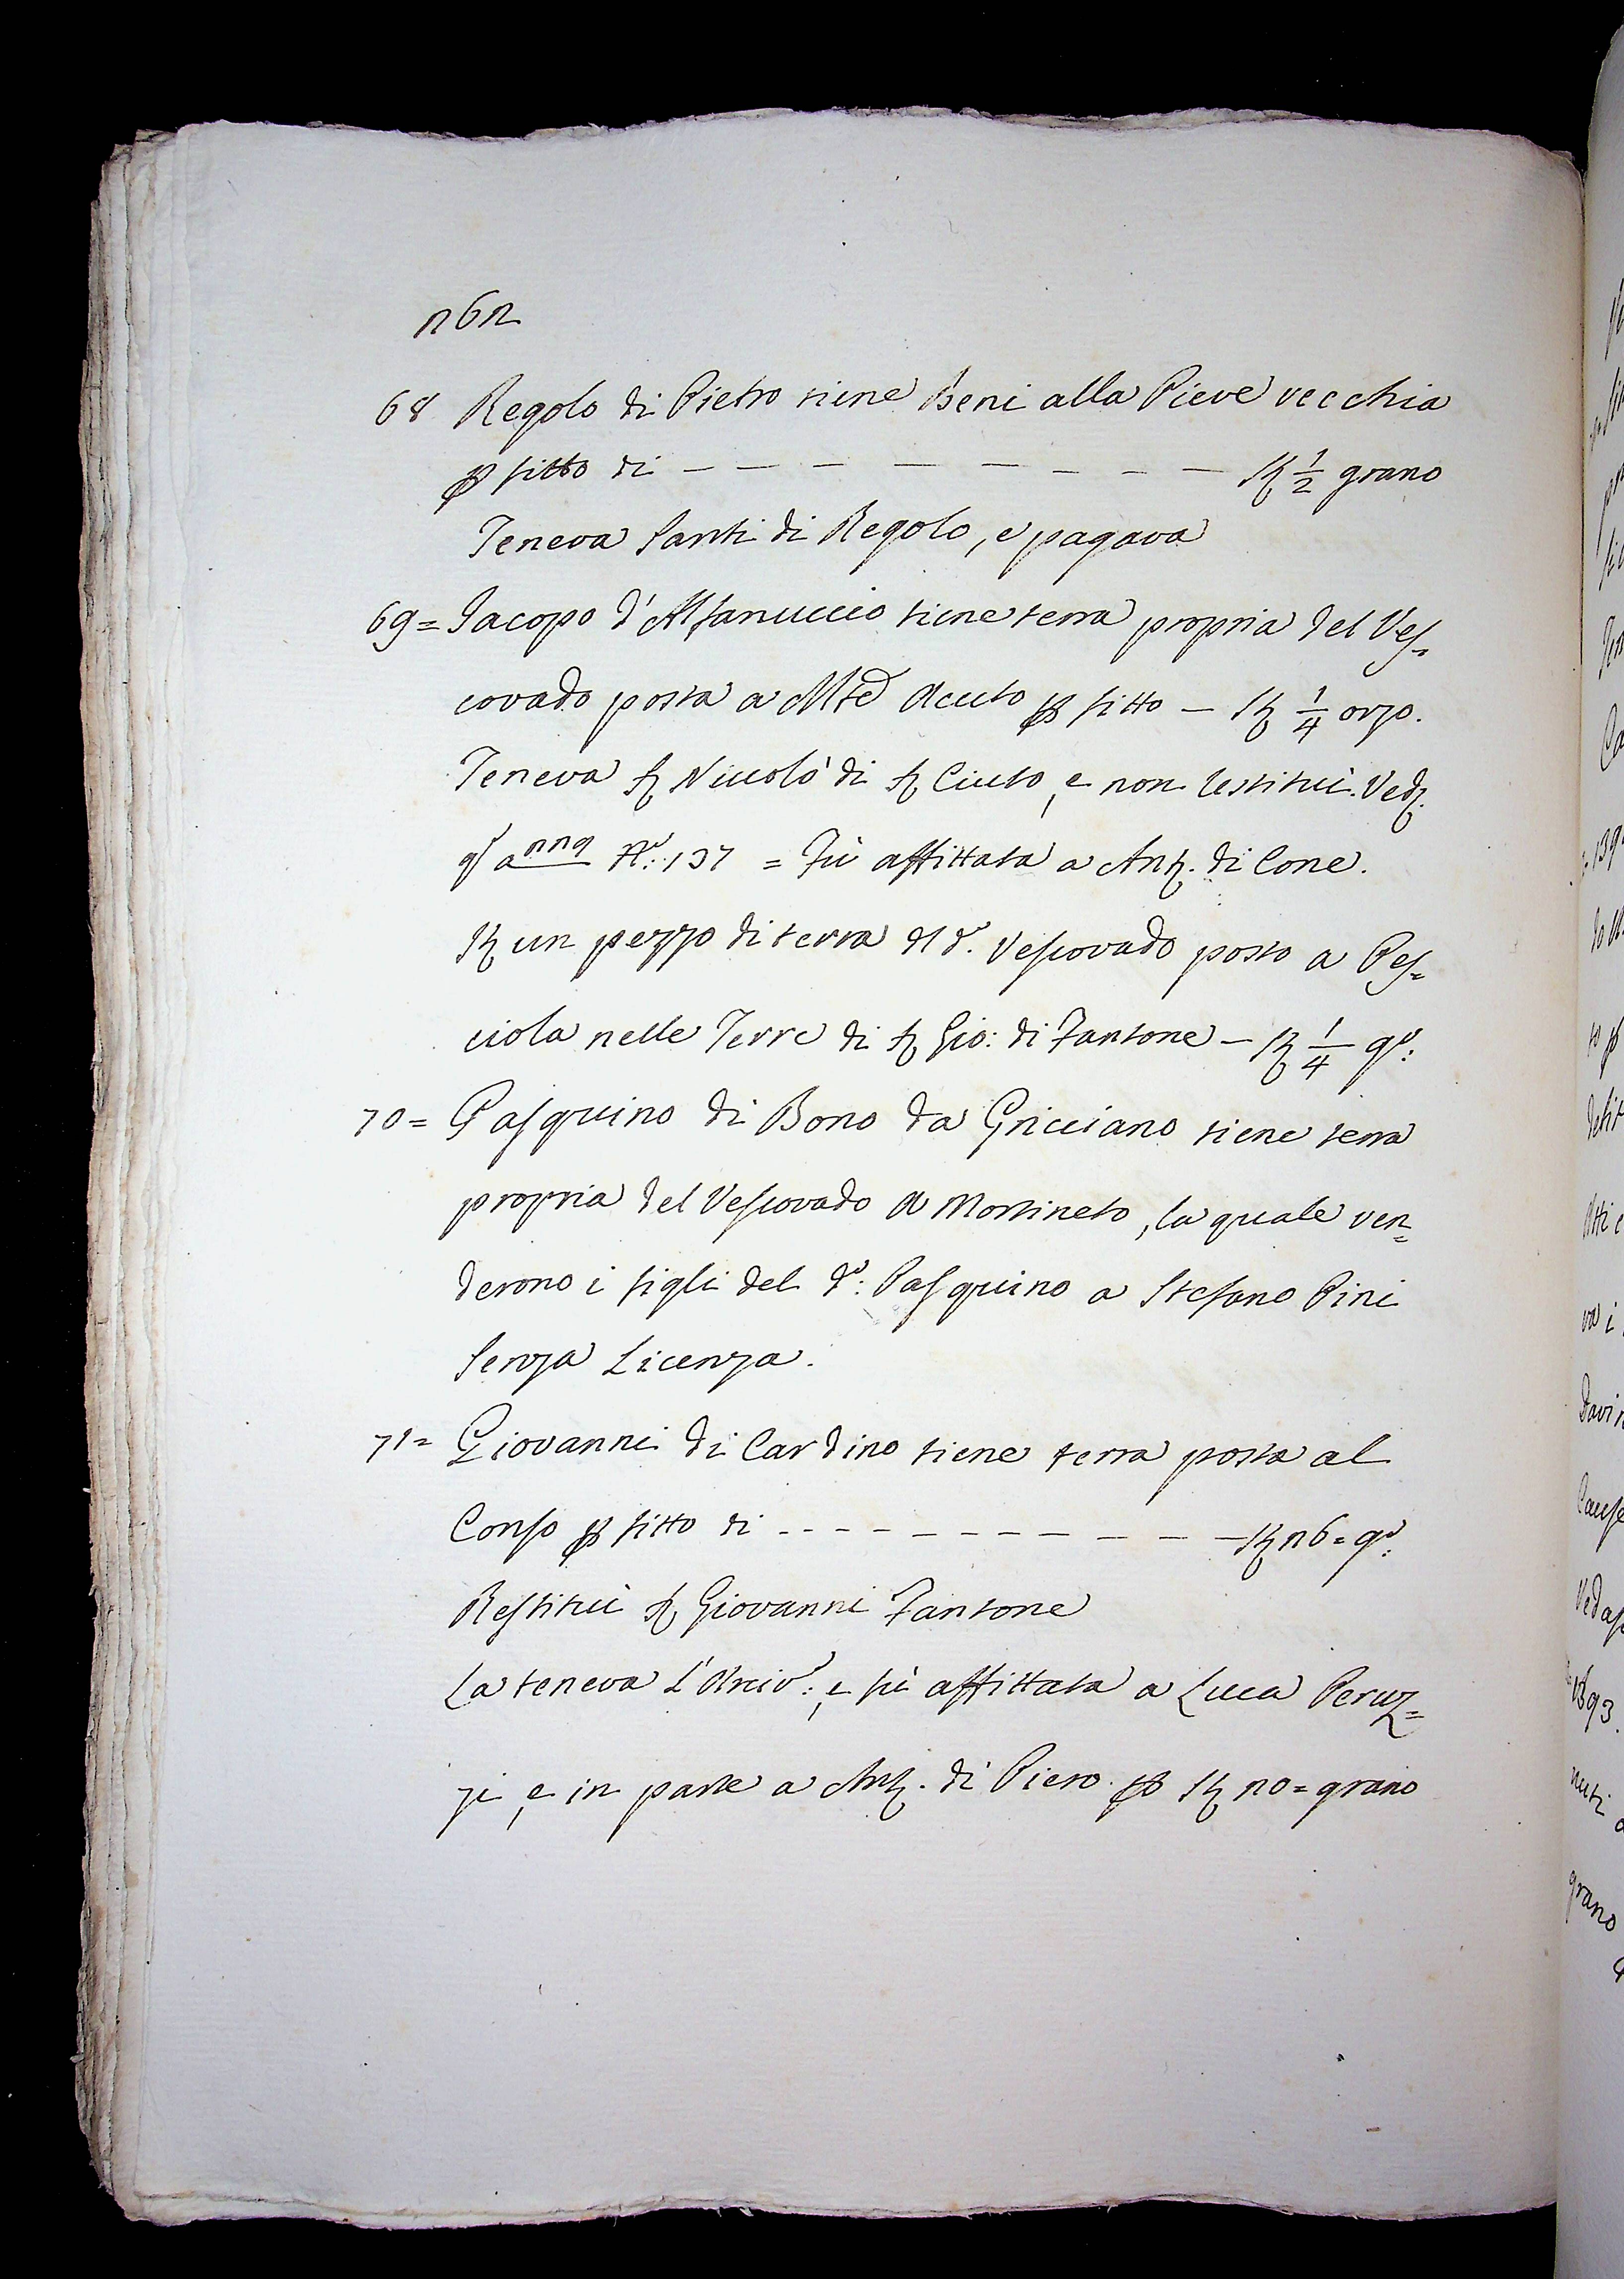 262
68 Regolo di Pietro tiene Beni alla Pieve vecchia
p fitto di - - - - - - - - St 1/2 grano
Teneva Santi di Regolo, e pagava
69 = Iacopo d'Alfanuccio tiene terra propria del Ves=
covado posta a Mte Acuto p fitto - St 1/4 orzo.
Teneva S Niccolò di S Ciuto, e non restituì. Ved.
a 229 No: 137 = Fù affittata a Ant. di Cone.
St un pezzo di terra dl do. Vescovado posto a Pes=
ciola nelle Terre di S Gio: di Fantone - St 1/4 go:
70 = Pasquino di Bono da Gricciano tiene terra
propria del Vescovado a Mortineto, la quale ven=
derono i figli del do: Pasquino a Stefano Pini
senza Licenza.
71 = Giovanni di Cardino tiene terra posta al
Conso p fitto di - - - - - - - - - - - St 26 = go:
Restituì S Giovanni Fantone
La teneva l'Arcivo: e fù affittata a Luca Peruz=
zi, e in parte a Ant. di Piero. p St 20 = grano